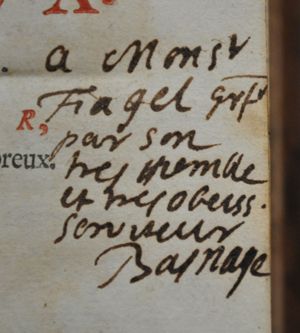 a Monsr
Fagel grfr
R,
par son
breux.
tres humble
et tres obeiss.
serviteur
Basnage